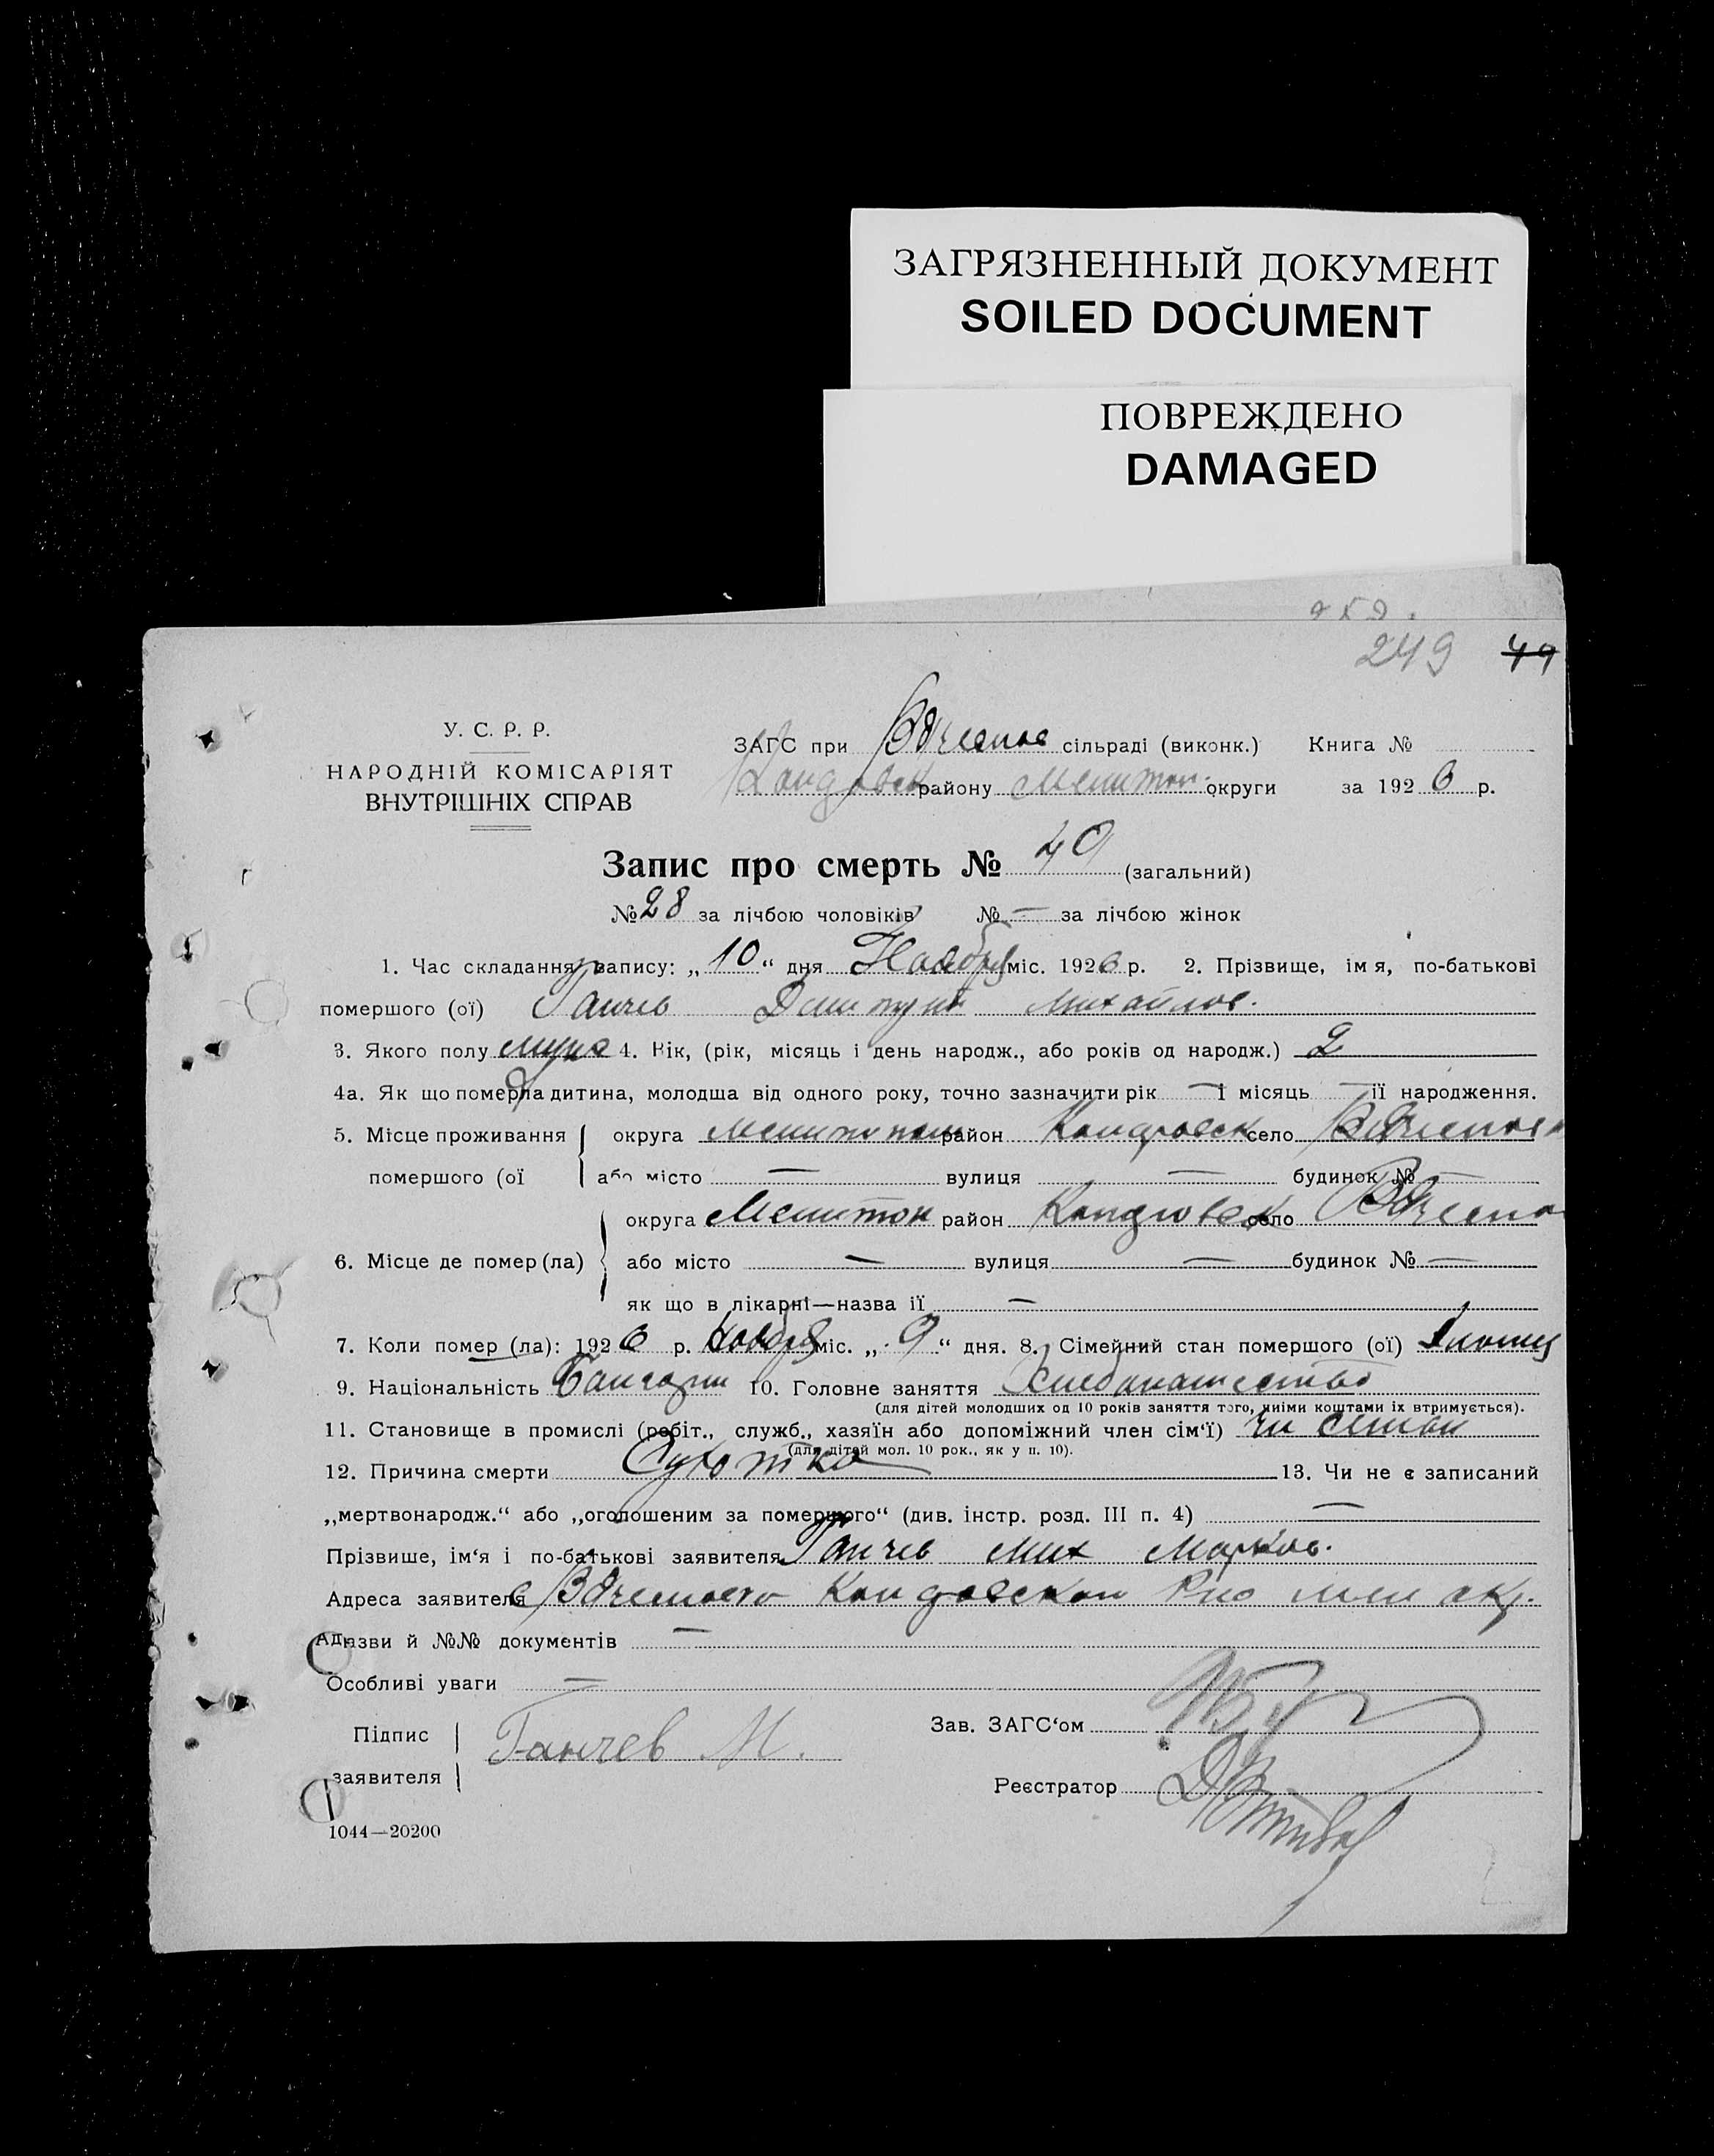 ЗАГРЯЗНЕННЫЙ ДОКУМЕНТ
SOILED DOCUMENT
ПОВРЕЖДЕНО
DAMAGED
249 49
У. С. Р. Р.
НАРОДНІЙ КОМІСАРІЯТ
ВНУТРІШНІХ СПРАВ
ЗАГС при сільраді (виконк.) Книга №
району Мелитоп. округи за 1926 р.
Запис про смерть № 49 (загальний)
№ 28 за лічбою чоловіків № — за лічбою жінок
1. Час складання запису: „10“ дня Ноября міс. 1926 р. 2. Прізвище, імя, по-батькові
помершого (ої) Ганчев Дмитрий Михайлов.
3. Якого полу 4. Вік, (рік, місяць і день народж., або років од народж.) 2
4а. Як що померла дитина, молодша від одного року, точно зазначити рік — і місяць — її народження.
5. Місце проживання округа район село
помершого (ої або місто — вулиця — будинок № —
округа Мелитоп район село
6. Місце де помер (ла) або місто — вулиця — будинок № —
як що в лікарні—назва її —
7. Коли помер (ла): 1926 р. Ноября міс. „9“ дня. 8. Сімейний стан помершого (ої)
9. Національність Болгарин 10. Головне заняття Хлебопашество
(для дітей молодших од 10 років заняття того, чиїми коштами їх втримується).
11. Становище в промислі (робіт., служб., хазяїн або допоміжний член сім‘ї) чл семьи
(для дітей мол. 10 рок., як у п. 10).
12. Причина смерти Сухотка 13. Чи не є записаний
„мертвонародж.“ або „оголошеним за помершого“ (див. інстр. розд. III п. 4) —
Прізвише, ім‘я і по-батькові заявителя Ганчев Мих Марков.
Адреса заявителя
Назви й №№ документів —
Особливі уваги —
Підпис Ганчев М. Зав. ЗАГС‘ом
заявителя Реєстратор
1044—20200